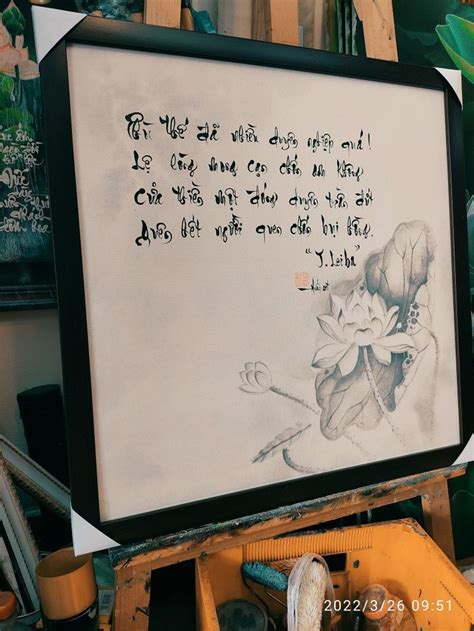 Phù thế đã nhiều duyên nghiệp quá!
Lệ lòng mong cạn chốn am không
Cửa thiền một đóng duyên trần dứt
Quên hết người quen chốn bụi hồng.
"J.Leiba"
2022/3/26 09:51